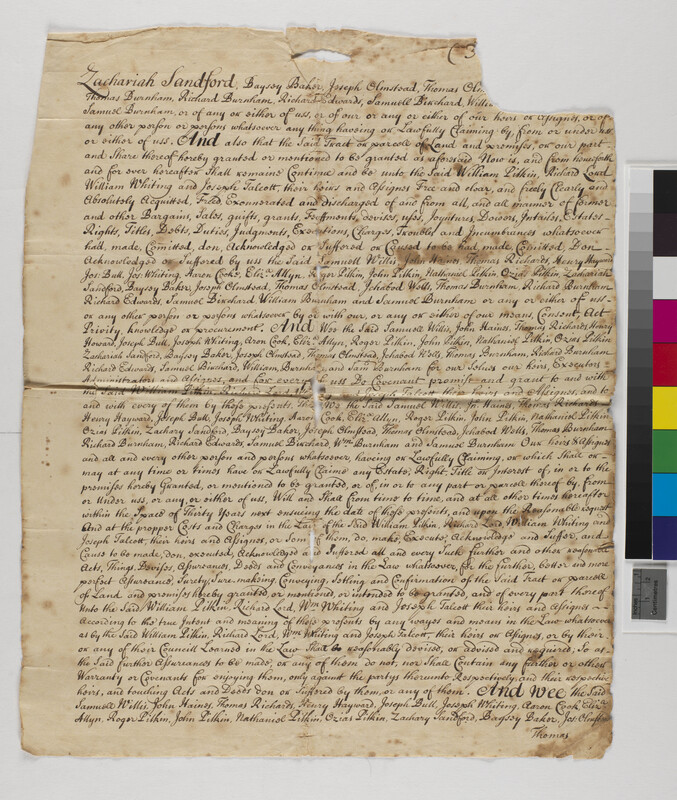 (3
Zachariah Sandford, Baysey Baker, Joseph Olmstead, Thomas Olm
Thomas Burnham, Richard Burnham, Richard Edwards, Samuell Birchard, Willia
Samuel Burnham, or of any or either of uss, or of our or any or either of our heirs or assignes, or of
any other person or persons whatsoever any thing haveing or Lawfully Claiming by, from or under uss
or either of uss. And also that the Said Tract or parcele of Land and premisses, or our part
and Share thereof hereby granted or mentioned to be granted as aforesaid Now is, and from henceforth
and for ever hereafter Shall remaine Continue and be unto the Said William Pitkin, Richard Lord
William Whiting and Joseph Talcott, their heirs and Assignes Free and clear, and freely Clearly and
Absolutely Acquitted, Freed, Exonnerated and discharged of and from all, and all manner of former
and other Bargains, Sales, guifts, grants, Feoffments, devises, uses, Joyntures, Dowers, Intailes, Estates
Rights, Titles, Debts, Duties, Judgments, Executions, Charges, Troubles and Incumbrances whatsoever
had, made, Comitted, don, Acknowledged or Suffered or Caused to be had made Comitted, Don
Acknowledged or Suffered by uss the Said Samuell Willis John Haines Thomas Richards, Henry Hayward
Jos: Bull, Jos: Whiting Aaron Cook, Eliz: Allyn, Roger Pitkin, John Pitkin, Nathaniel Pitkin Ozias Pitkin, Zachariah
Sandford, Baysey Baker, Joseph Olmstead, Thomas Olmstead, Jehabod Wells, Thomas Burnham, Richard Burnham
Richard Edwards, Samuel Birchard William Burnham and Samuel Burnham or any or either of uss
or any other person or persons whatsoever by or with our, or any or either of our means Consent, Act
Privity, knowledge or procurement. And Wee the Said Samuel Willis, John Hains, Thomas Richards, Henry
Howard, Joseph Bull, Joseph Whiting, Aron Cook, Eliz: Allyn, Roger Pitkin, John Pitkin, Nathaniel Pitkin, Ozias Pitkin
Zachariah Sandford, Baysey Baker, Joseph Olmstead, Thomas Olmstead, Jehabod Wells, Thomas Burnham, Richard Burnham
Richard Edwards, Samuel Birchard, William Burnham and Sam Burnham for our Selves our heirs, Executors
Administrators and Assignes, and for every of uss Do Covenant promise and grant to and with
the Said William Pitkin, Richard Lord Talcott their heirs and Assignes, and to
and with every of them by these presents. That Wee the Said Samuel Willis, Jn. Haines, Thomas Richards
Henry Hayward, Joseph Bull, Joseph Whiting, Aaron Cook, Eliz: Allyn, Roger Pitkin, John Pitkin, Nathaniel Pitkin
Ozias Pitkin, Zachary Sandford, Baysey Baker, Joseph Olmstead, Thomas Olmstead, Jehabod Wells, Thomas Burnham
Richard Burnham, Richard Edwards, Samuel Birchard, Wm Burnham and Samuel Burnham Our heirs & Assignes
and all and every other person and persons whatsoever, haveing or Lawfully Claiming, or which Shall or
may at any time or times have or Lawfully Claime any Estate, Right, Title or Interest of, in or to the
premises hereby Granted, or mentioned to be granted, or of, in or to any part or parcele thereof by, from
or under uss, or any, or either of uss, Will and Shall from time to time, and at all other times hereafter
within the Space of Thirty Years next ensuing the date of these presents, and upon the Reasonable request
And at the propper Costs and Charges in the Law of the Said William Pitkin, Richard Lord, William Whiting and
Joseph Talcott, their heirs and Assignes, or Som of them, do, make, Execute, Acknowledge and Suffer, and
Cause to be made, don, executed, Acknowledged and Suffered all and every Such further and other reasonable
Acts, Things, Devises, Assurances, Deeds and Conveyances in the Law whatsoever, for the further, better and more
perfect Assurance, Surety, Sure-making, Conveying, Setling and Confirmation of the Said Tract or parcele
of Land and premises hereby granted or mentioned, or intended to be granted, and of every part thereof
Unto the Said William Pitkin, Richard Lord, Wm Whiting and Joseph Talcott their heirs and Assignes
According to the true Intent and meaning of these presents by any wayes and means in the Law whatsoever
as by the Said William Pitkin, Richard Lord, Wm Whiting and Joseph Talcott, their heirs or Assignes, or by their
or any of their Councill Learned in the Law Shall be reasonably devised, or advised and required, So as
the Said further Assurances to be made, or any of them do not, nor Shall Contain any further or other
Warranty or Covenants for enjoying them, only against the partys thereunto Respectively, and their respective
heirs, and touching Acts and Deeds don or Suffered by them, or any of them. And Wee the Said
Samuell Willis, John Haines, Thomas Richards, Henry Hayward, Joseph Bull, Joseph Whiting, Aaron Cook, Eliz:
Allyn, Roger Pitkin, John Pitkin, Nathaniel Pitkin, Ozias Pitkin, Zachary Sandford, Baysey Baker, Jos: Olmstead
Thomas
Inches
Centimetres